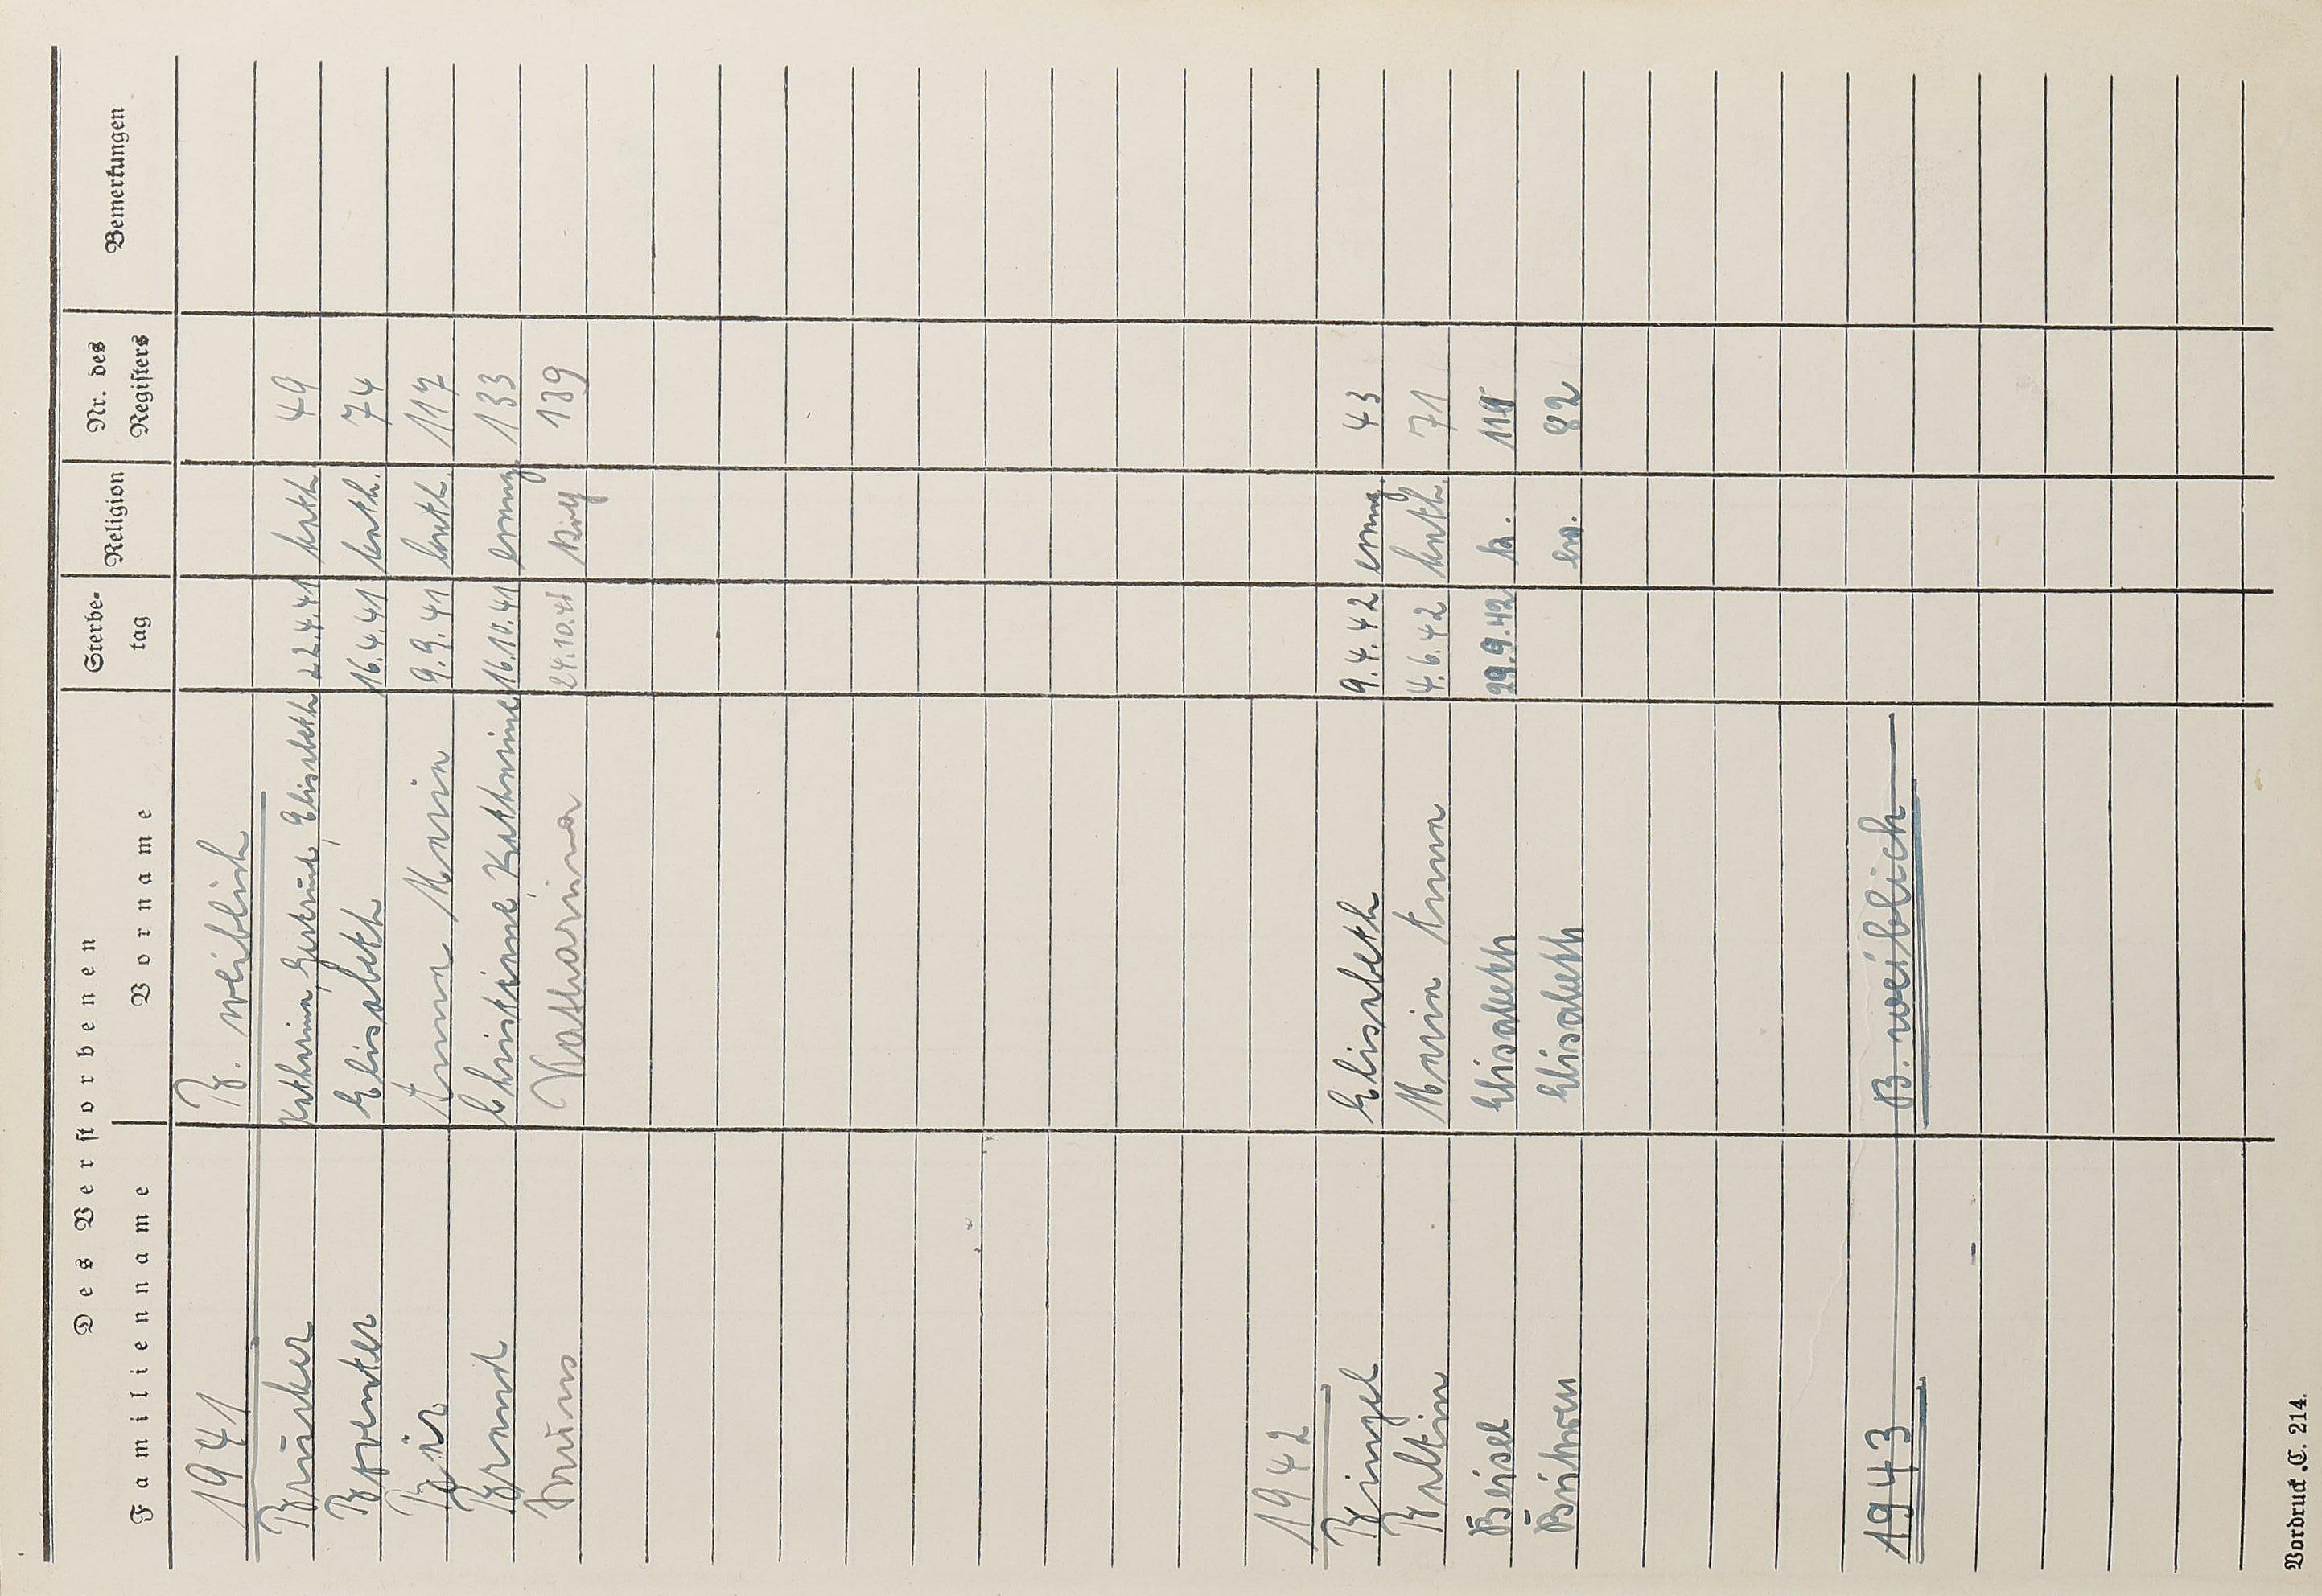 Des Verstorbenen
Familienname Vorname Sterbe-tag Religion Nr. des Registers Bemerkungen
1941 B. weiblich
Brücker Katharina Gertrud Elisabeth 22.4.41 kath 49
Elisabeth 16.4.41 kath. 74
Anna Maria 9.9.41 kath. 117
Brand Christine Katharine 16.10.41 evang 133
Bruns Katharina 24.10.41 139
1942
Bingel Elisabeth 9.4.42 evang. 43
Baltin Maria Anna 4.6.42 kath. 71
Beisel Elisabeth 29.9.42 k.
Elisabeth ev. 82
1943 B. weiblich
Vordruck C. 214.